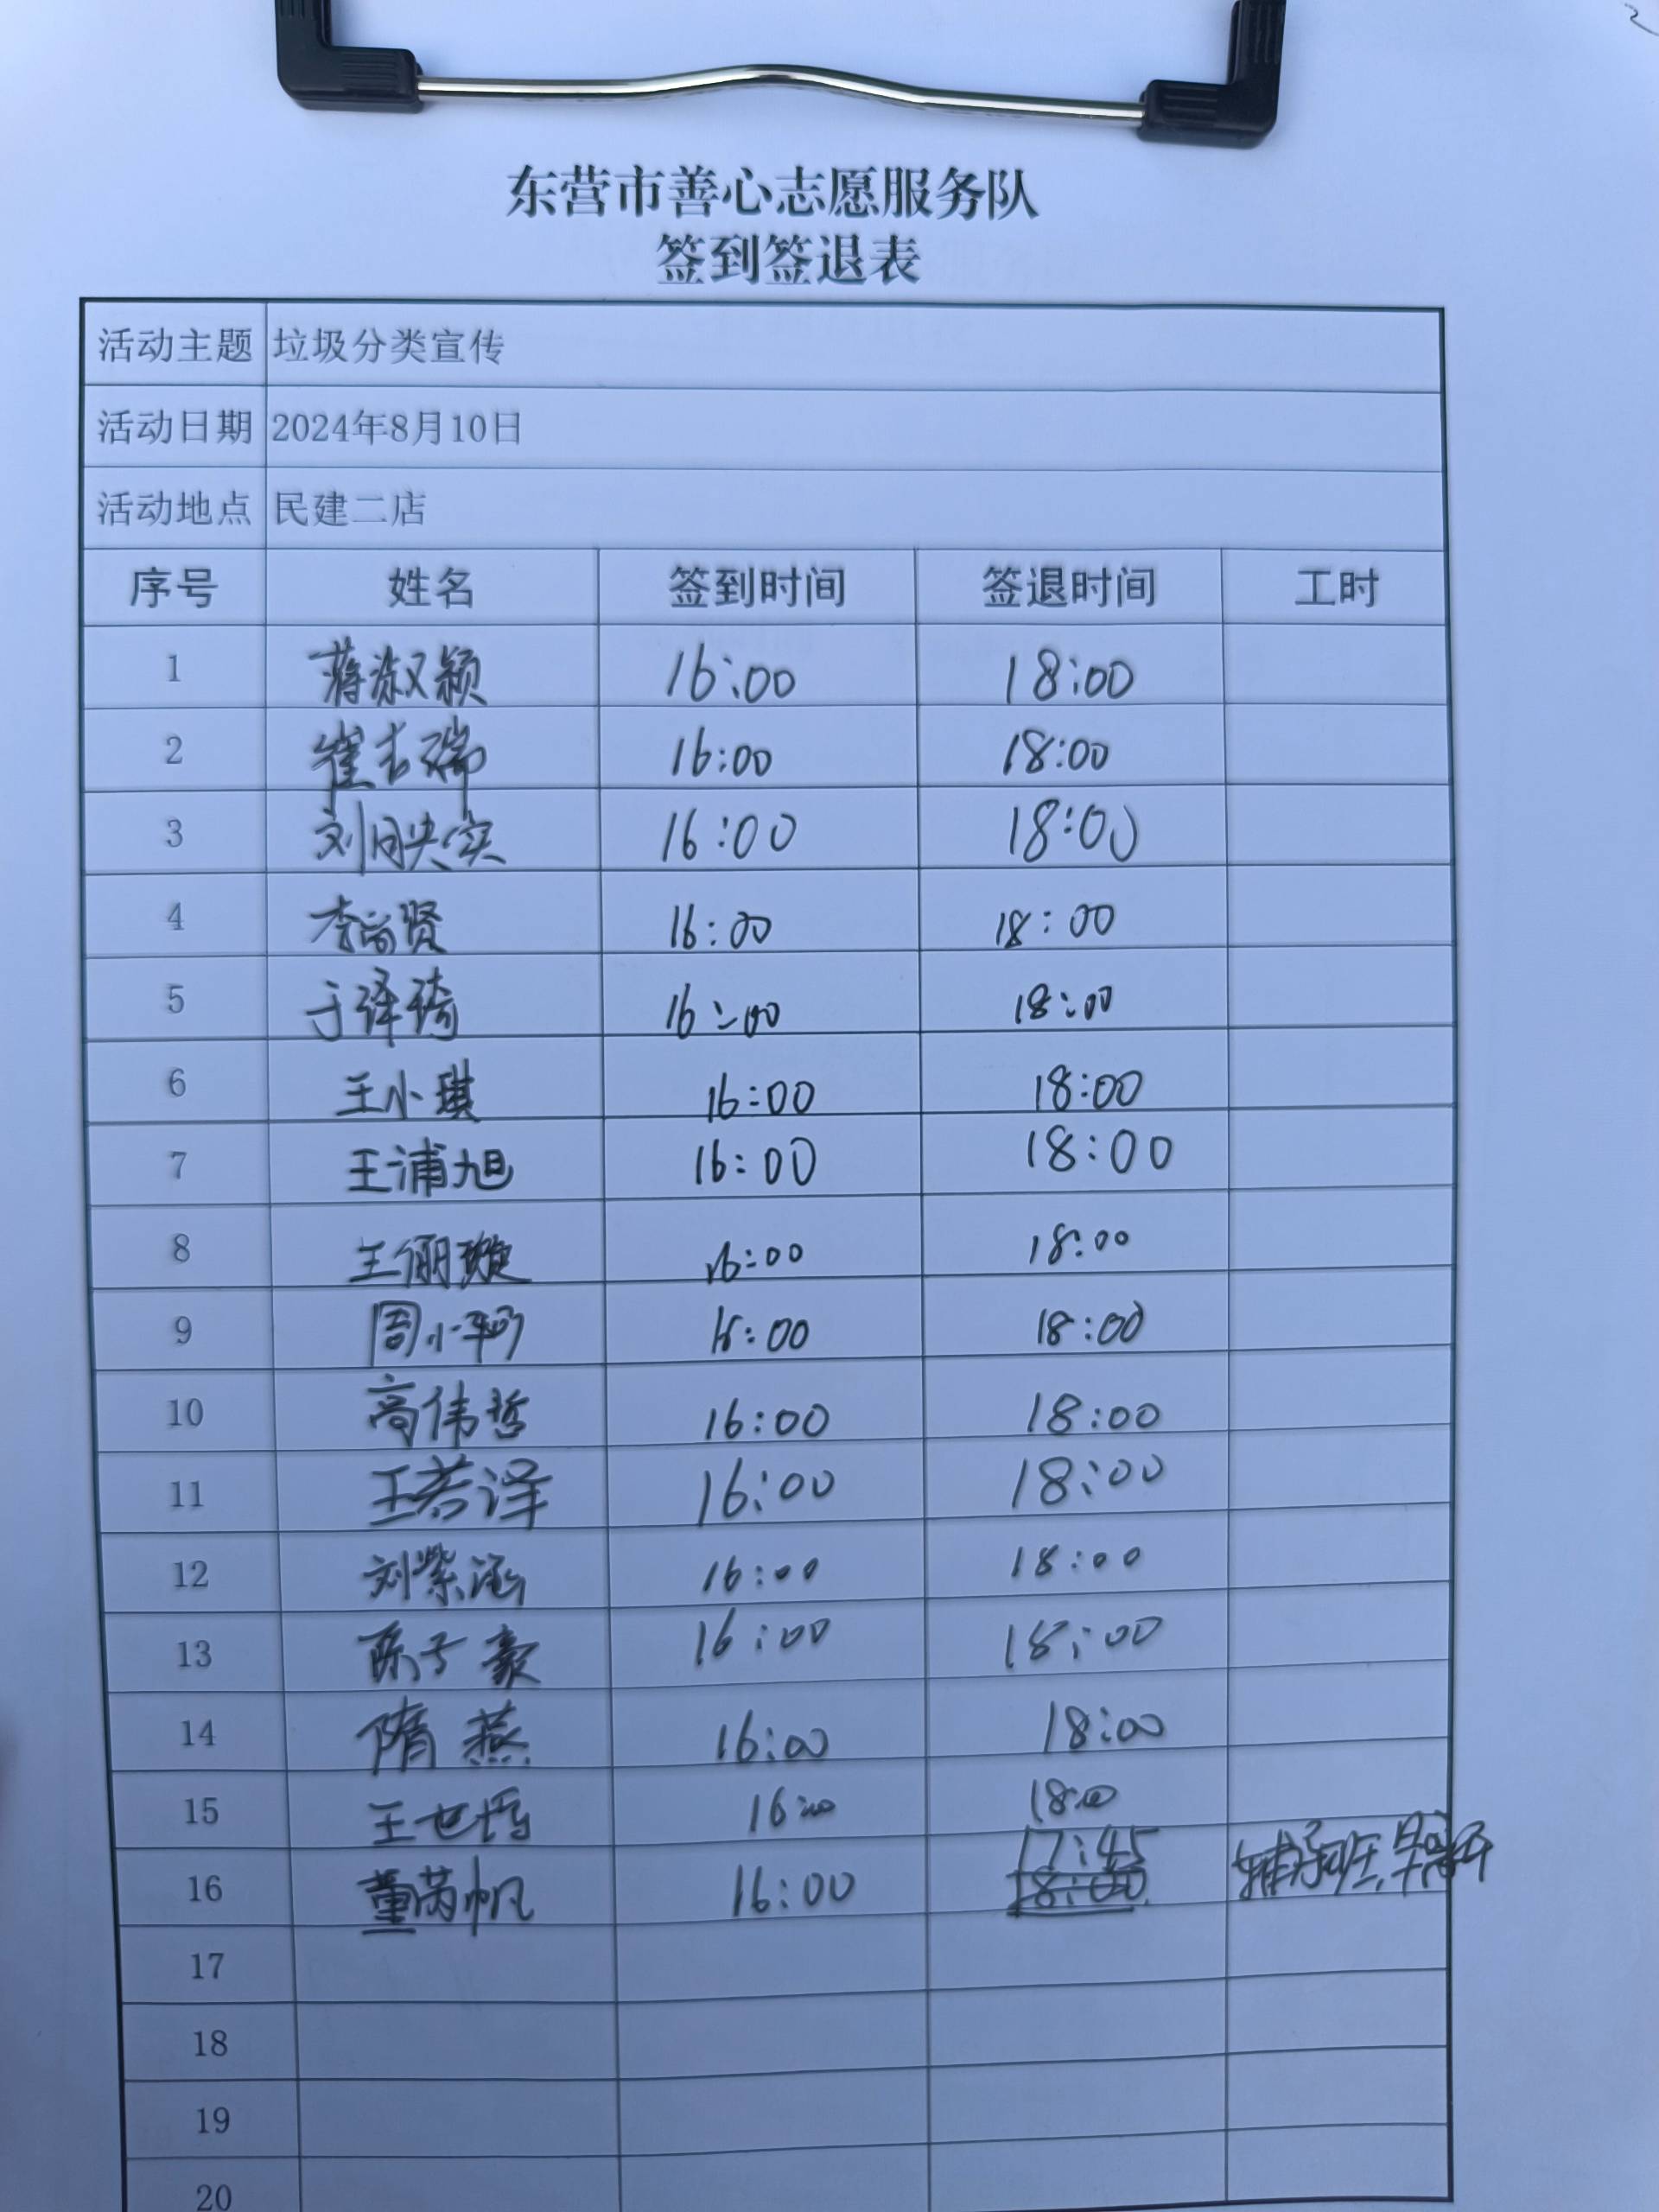 东营市善心志愿服务队
签到签退表
活动主题 垃圾分类宣传
活动日期 2024年8月10日
活动地点 民建二店
序号 姓名 签到时间 签退时间 工时
1 蒋淑颖 16:00 18:00
2 崔吉瑞 16:00 18:00
3 16:00 18:00
4 李尚贤 16:00 18:00
5 于译琦 16:00 18:00
6 王小琪 16:00 18:00
7 王浦旭 16:00 18:00
8 王俪璇 16:00 18:00
9 周小 16:00 18:00
10 高伟哲 16:00 18:00
11 王若泽 16:00 18:00
12 刘紫涵 16:00 18:00
13 陈子豪 16:00 18:00
14 隋燕 16:00 18:00
15 王世博 16:00 18:00
16 董芮帆 16:00 17:45 18:00 辅导班,早离开
17
18
19
20